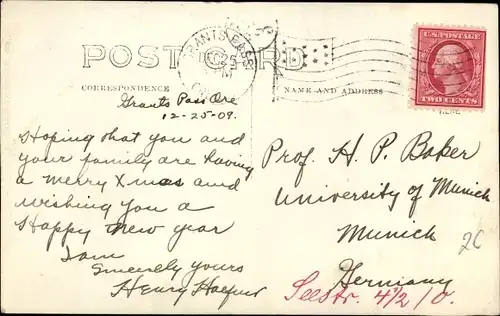 POST CARD
GRANTS PASS
CORRESPONDENCE
NAME AND ADDRESS
U.S. POSTAGE
TWO CENTS
Grants Pass Ore
12-25-09.
Hoping that you and
your family are having
a merry Xmas and
wishing you a
Happy New year
I am
Sincerely yours
Henry
Prof. H. P. Baker
University of Munich
Munich
Germany
Seestr. 4 1/2 /0.